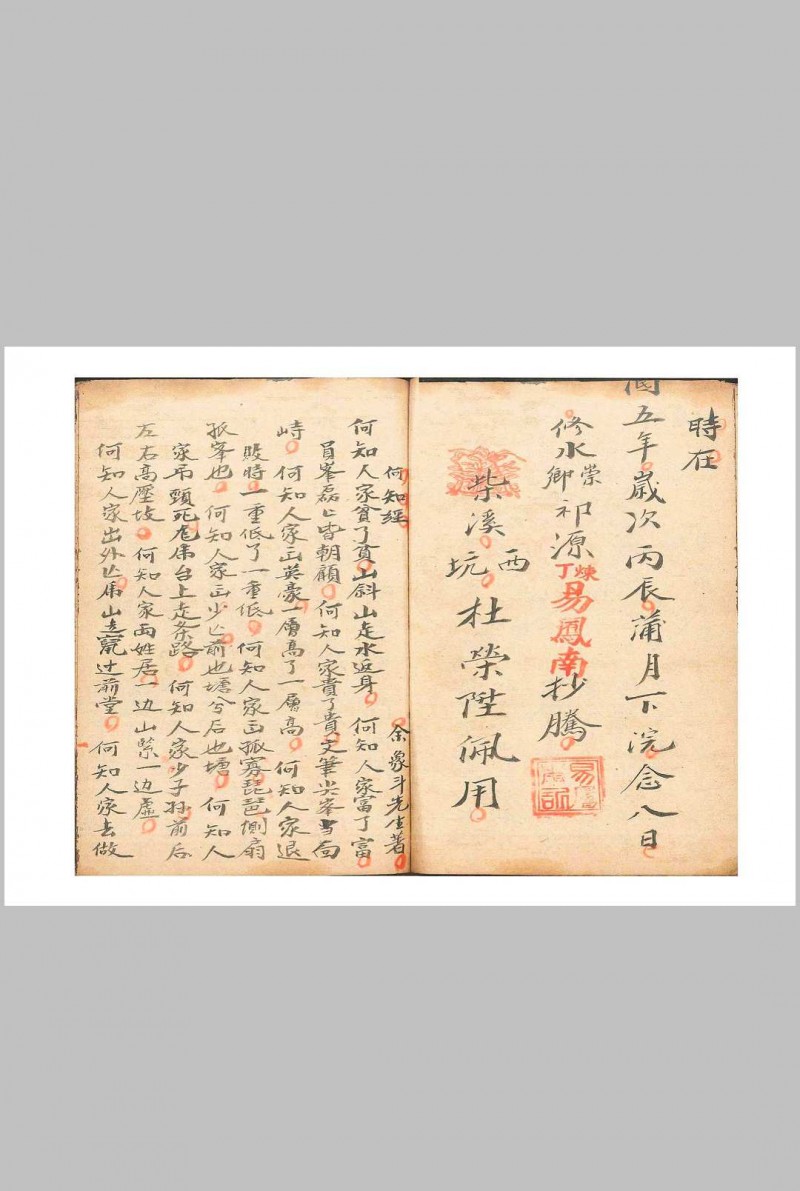 時在
國五年歲次丙辰蒲月下浣念八日
修水崇鄉祁源煉丁易鳳南抄騰
柴溪西坑杜榮陞佩用
何知經 余象斗先生著
何知人家貧了貧山斜山走水返身 何知人家富了富
員峯磊上皆朝顧 何知人家貴了貴文筆尖峯当向
峙 何知人家出英豪一層高了一層高 何知人家退
敗時一重低了一重低 何知人家出孤寡琵琶側扇
孤峯也 何知人家出少亡前也塘兮后也塘 何知人
家吊頸死龙虎台上走条路 何知人家少子孙前后
左右高壓坟 何知人家両姓居一边山縈一边虛
何知人家出外亡虎山走竄过前堂 何知人家去做